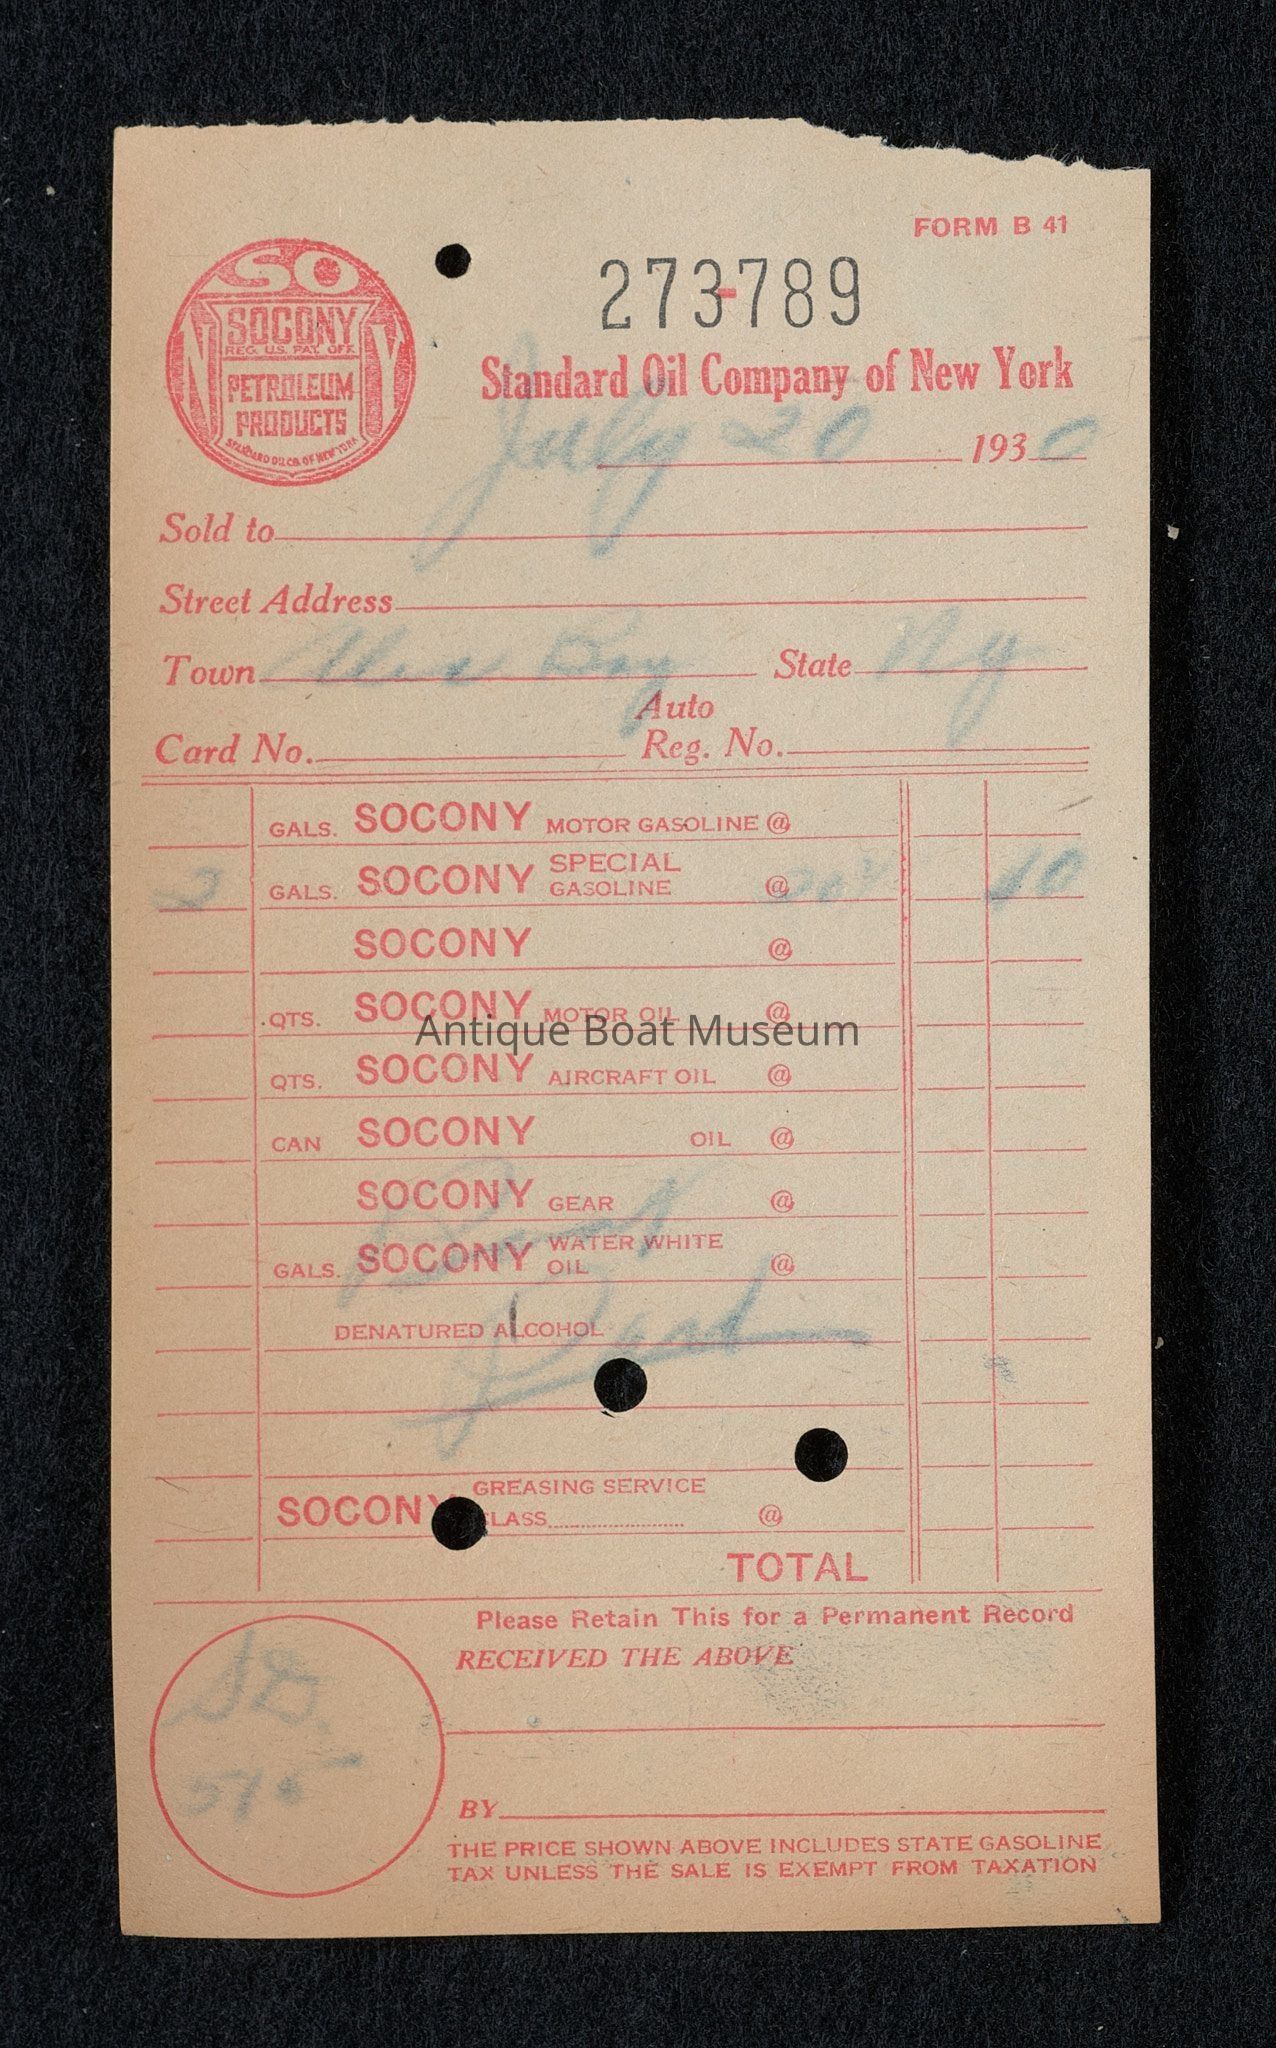 FORM B 41
SO
NY
SOCONY
REG. U.S. PAT. OFF.
PETROLEUM
PRODUCTS
STANDARD OIL CO. OF NEW YORK
273-789
Standard Oil Company of New York
July 20 1930
Sold to
Street Address
Town Alex Bay State Ny
Auto
Card No. Reg. No.
GALS. SOCONY MOTOR GASOLINE @
2 GALS. SOCONY SPECIAL GASOLINE @ 40
SOCONY @
QTS. SOCONY MOTOR OIL @
Antique Boat Museum
QTS. SOCONY AIRCRAFT OIL @
CAN SOCONY OIL @
SOCONY GEAR @
GALS. SOCONY WATER WHITE OIL @
DENATURED ALCOHOL
GREASING SERVICE
SOCONY CLASS @
TOTAL
Please Retain This for a Permanent Record
RECEIVED THE ABOVE
BY
THE PRICE SHOWN ABOVE INCLUDES STATE GASOLINE
TAX UNLESS THE SALE IS EXEMPT FROM TAXATION